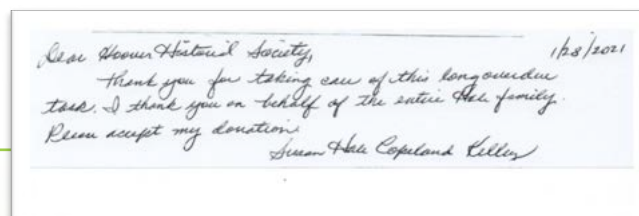 Dear Hoover Historical Society, 1/28/2021
Thank you for taking care of this long overdue
task. I thank you on behalf of the entire Hale family.
Please accept my donation.
Susan Hale Copeland Kelley